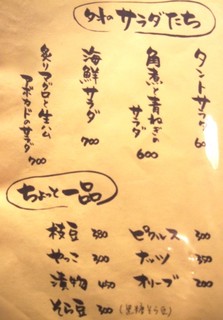 外のサラダたち
タントサラダ 60
角煮と青ねぎのサラダ 600
海鮮サラダ 700
炙りマグロと生ハム
アボカドのサラダ 700
ちょっと一品
枝豆 380
やっこ 300
漬物 450
そら豆 300 (黒糖そら豆)
ピクルス 300
ナッツ 350
オリーブ 200